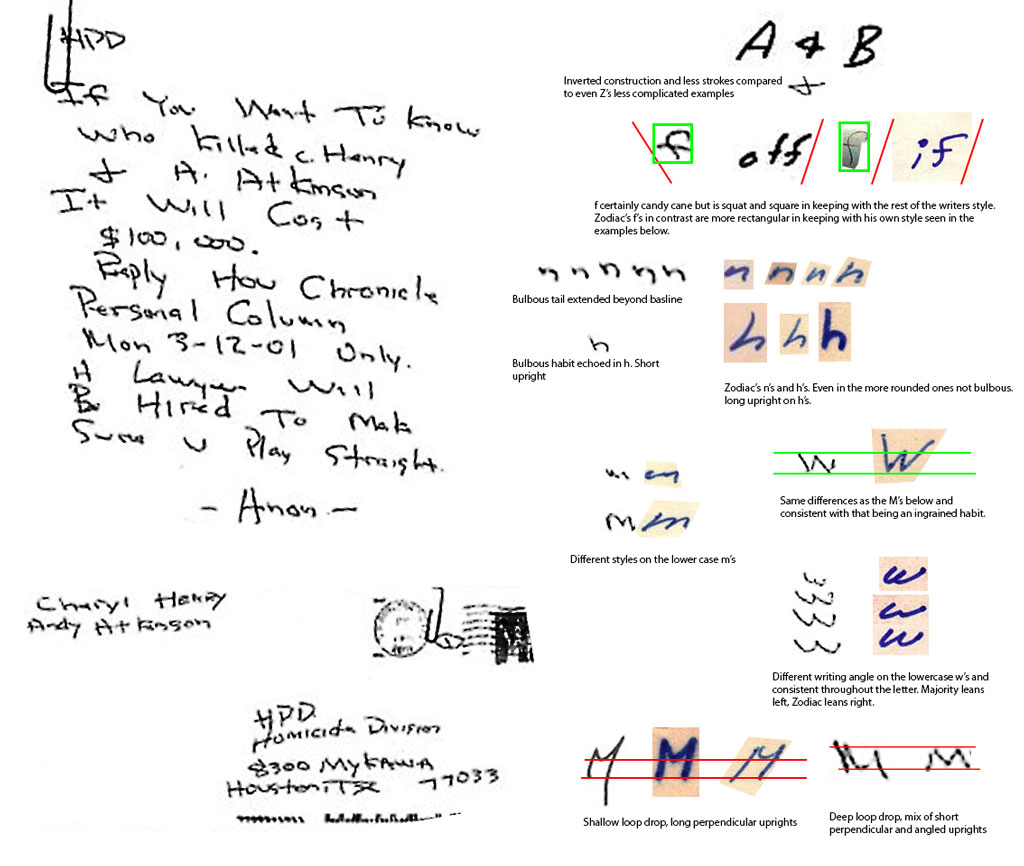 HPD
If You Want To Know
Who Killed C. Henry
& A. Atkinson
It Will Cost
$100,000.
Reply How Chronicle
Personal Column
Mon 3-12-01 Only.
A Lawyer Will
Be Hired To Make
Sure U Play Straight.
- Anon -
Cheryl Henry
Andy Atkinson
HPD
Homicide Division
8300 MYKAWA
Houston, TX 77033
A & B
Inverted construction and less strokes compared
to even Z's less complicated examples
&
f off f if
f certainly candy cane but is squat and square in keeping with the rest of the writers style.
Zodiac's f's in contrast are more rectangular in keeping with his own style seen in the
examples below.
n n n n n n n n n
Bulbous tail extended beyond basline
h h h h
Bulbous habit echoed in h. Short
upright
Zodiac's n's and h's. Even in the more rounded ones not bulbous.
long upright on h's.
m m
M m
Different styles on the lower case m's
W W
Same differences as the M's below and
consistent with that being an ingrained habit.
w w
w w
w w
Different writing angle on the lowercase w's and
consistent throughout the letter. Majority leans
left, Zodiac leans right.
M M M
Shallow loop drop, long perpendicular uprights
M M
Deep loop drop, mix of short
perpendicular and angled uprights